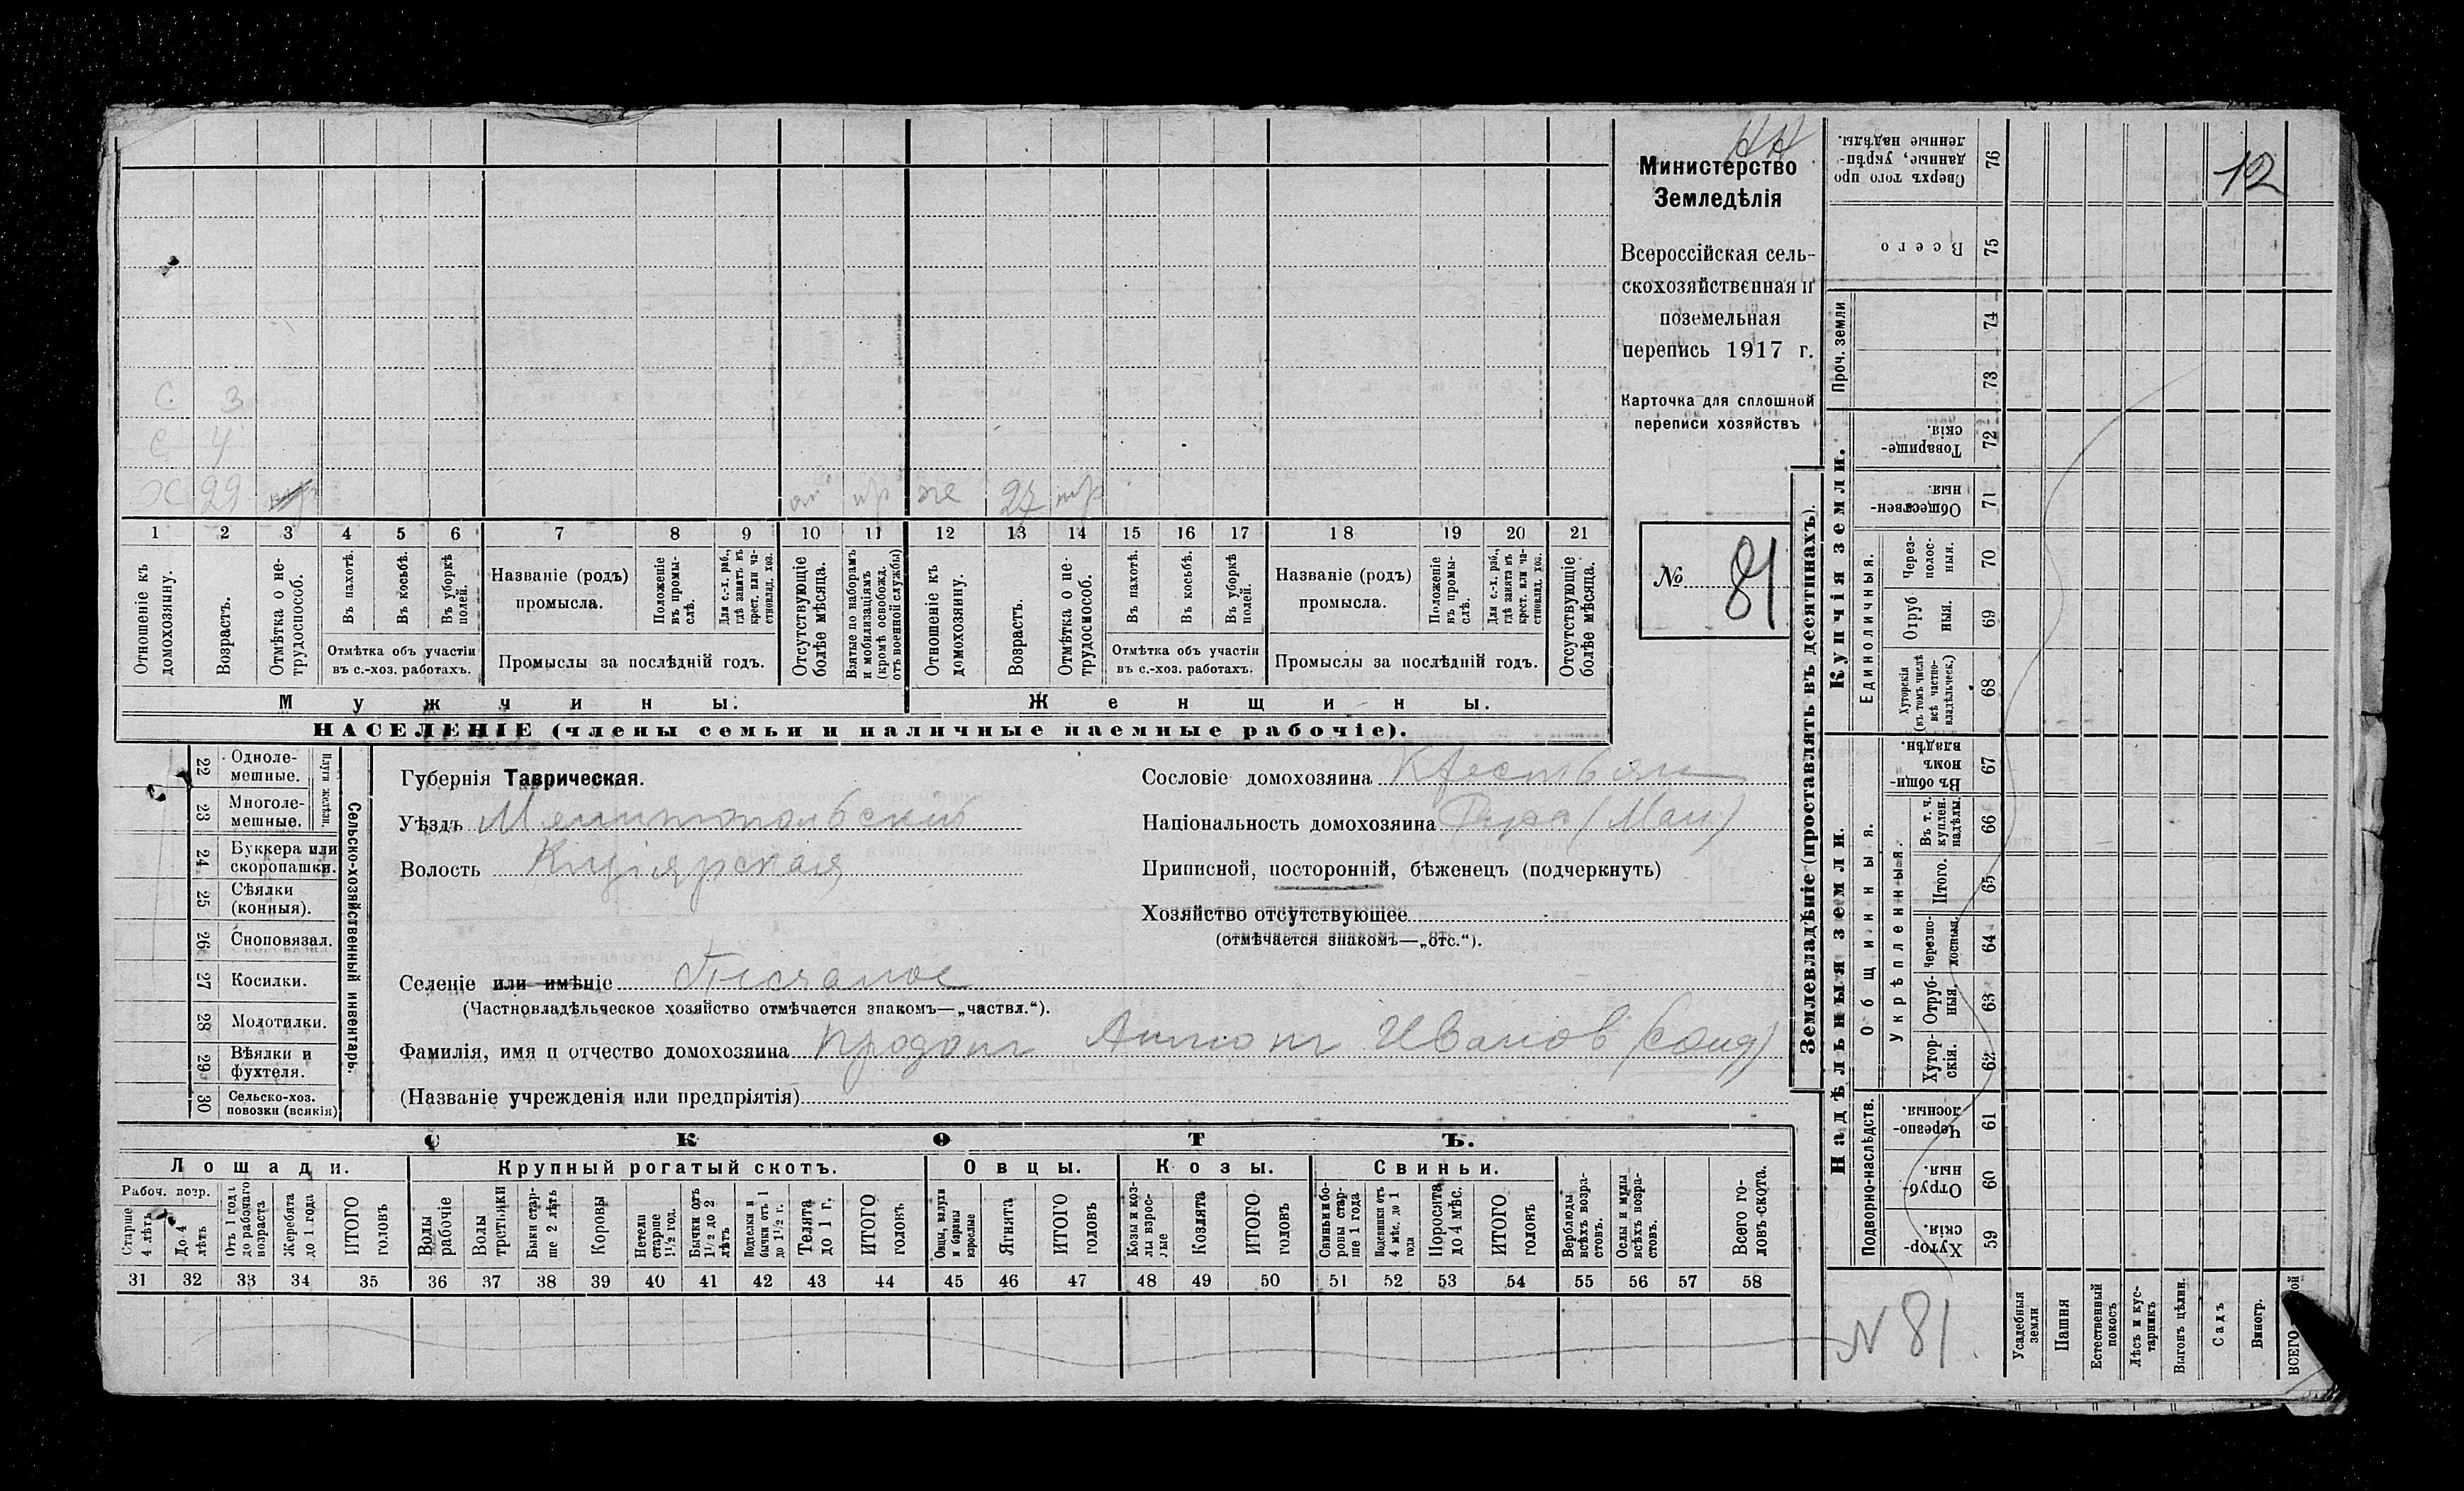 НН
Министерство
Земледѣлія
Всероссійская сель-
скохозяйственная и
поземельная
перепись 1917 г.
Карточка для сплошной
переписи хозяйствъ
№ 81
12
С 3
С 4
Х 29
пр же 27
1 2 3 4 5 6 7 8 9 10 11 12 13 14 15 16 17 18 19 20 21
Отношеніе къ домохозяину.
Возрастъ.
Отмѣтка о не-трудоспособ.
Въ пахотѣ.
Въ косьбѣ.
Въ уборкѣ полей.
Отмѣтка объ участіи
въ с.-хоз. работахъ.
Названіе (родъ)
промысла.
Положеніе въ промы-слѣ.
Для с.-х. раб., гдѣ занятъ въ крест. или ча-стновлад. хоз.
Промыслы за послѣдній годъ.
Отсутствующіе болѣе мѣсяца.
Взятые по наборамъ и мобилизаціямъ (кромѣ освобожд. отъ военной службы)
Отношеніе къ домохозяину.
Возрастъ.
Отмѣтка о не-трудоспособ.
Въ пахотѣ.
Въ косьбѣ.
Въ уборкѣ полей.
Отмѣтка объ участіи
въ с.-хоз. работахъ.
Названіе (родъ)
промысла.
Положеніе въ промы-слѣ.
Для с.-х. раб., гдѣ занята въ крест. или ча-стновлад. хоз.
Промыслы за послѣдній годъ.
Отсутствующіе болѣе мѣсяца.
Мужчины:
Женщины.
НАСЕЛЕНІЕ (члены семьи и наличные наемные рабочіе).
22 Одноле-мешные.
23 Многоле-мешные.
Плуги желѣзн.
24 Буккера или скоропашки.
25 Сѣялки (конныя).
26 Сноповязал.
27 Косилки.
28 Молотилки.
29 Вѣялки и фухтеля.
30 Сельско-хоз. повозки (всякія)
Сельско-хозяйственный инвентарь.
Губернія Таврическая.
Уѣздъ Мелитопольскій
Волость Кизіярская
Селеніе или имѣніе Песчаное
(Частновладѣльческое хозяйство отмѣчается знакомъ—„частвл.“).
Фамилія, имя и отчество домохозяина Продан Антон Иванов (солд)
(Названіе учрежденія или предпріятія)
Сословіе домохозяина Крестьян
Національность домохозяина
Приписной, посторонній, бѣженецъ (подчеркнуть)
Хозяйство отсутствующее
(отмѣчается знакомъ—„отс.“).
СКОТЪ.
Лошади.
Крупный рогатый скотъ.
Овцы.
Козы.
Свиньи.
Рабоч. возр.
Старше 4 лѣтъ
До 4 лѣтъ
Отъ 1 года до рабочаго возраста
Жеребята до 1 года
ИТОГО головъ
Волы рабочіе
Волы третьяки
Быки стар-ше 2 лѣтъ
Коровы
Нетели старше 1½ год.
Бычки отъ 1½ до 2 лѣтъ
Подтелки и бычки отъ 1 до 1½ г.
Телята до 1 г.
ИТОГО головъ
Овцы, валухи и бараны взрослые
Ягнята
ИТОГО головъ
Козы и коз-лы взрос-лые
Козлята
ИТОГО головъ
Свиньи и бо-ровы стар-ше 1 года
Подсвинки отъ 4 мѣс. до 1 года
Поросята до 4 мѣс.
ИТОГО головъ
Верблюды всѣхъ возра-стовъ.
Ослы и мулы всѣхъ возра-стовъ.
Всего го-ловъ скота.
31 32 33 34 35 36 37 38 39 40 41 42 43 44 45 46 47 48 49 50 51 52 53 54 55 56 57 58
Землевладѣніе (проставлять въ десятинахъ).
Сверхъ того про данные, укрѣп-ленные надѣлы. 76
Всего 75
Проч. земли
74
73
Купчія земли.
Товарище-скія. 72
Обществен-ныя. 71
Единоличныя.
Через-полос-ныя. 70
Отруб ныя. 69
Хуторскія (въ томъ числѣ всѣ частно-владѣльческ.) 68
Надѣльныя земли.
Общинныя.
Въ общи-номъ владѣн. 67
Укрѣпленныя.
Въ т. ч. куплен. надѣлы. 66
Итого. 65
Черезпо-лосныя. 64
Отруб-ныя. 63
Хутор-скія. 62
Подворно-наслѣдств.
Черезпо-лосныя. 61
Отруб-ныя. 60
Хутор-скія. 59
N 81.
Усадебныя земли
Пашня
Естественный покосъ
Лѣсъ и кус-тарникъ
Выгонъ цѣлин.
Садъ
Виногр.
ВСЕГО